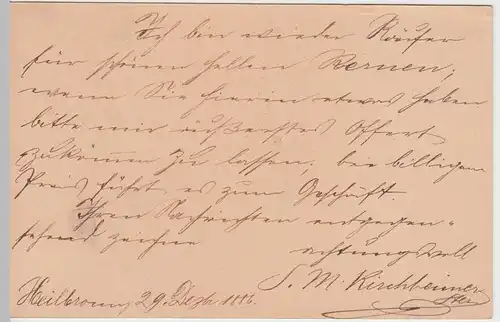 Ich bin wieder Käufer
für schönen hellen Kernen;
wenn Sie hierin etwas haben
bitte mir äußerstes Offert
zukommen zu lassen, bei billigem
Preis führt es zum Geschäft.
Ihren Nachrichten entgegen-
sehend zeichne
achtungsvoll
S. M. Kirchheimer
Heilbronn, 29. Dezb.